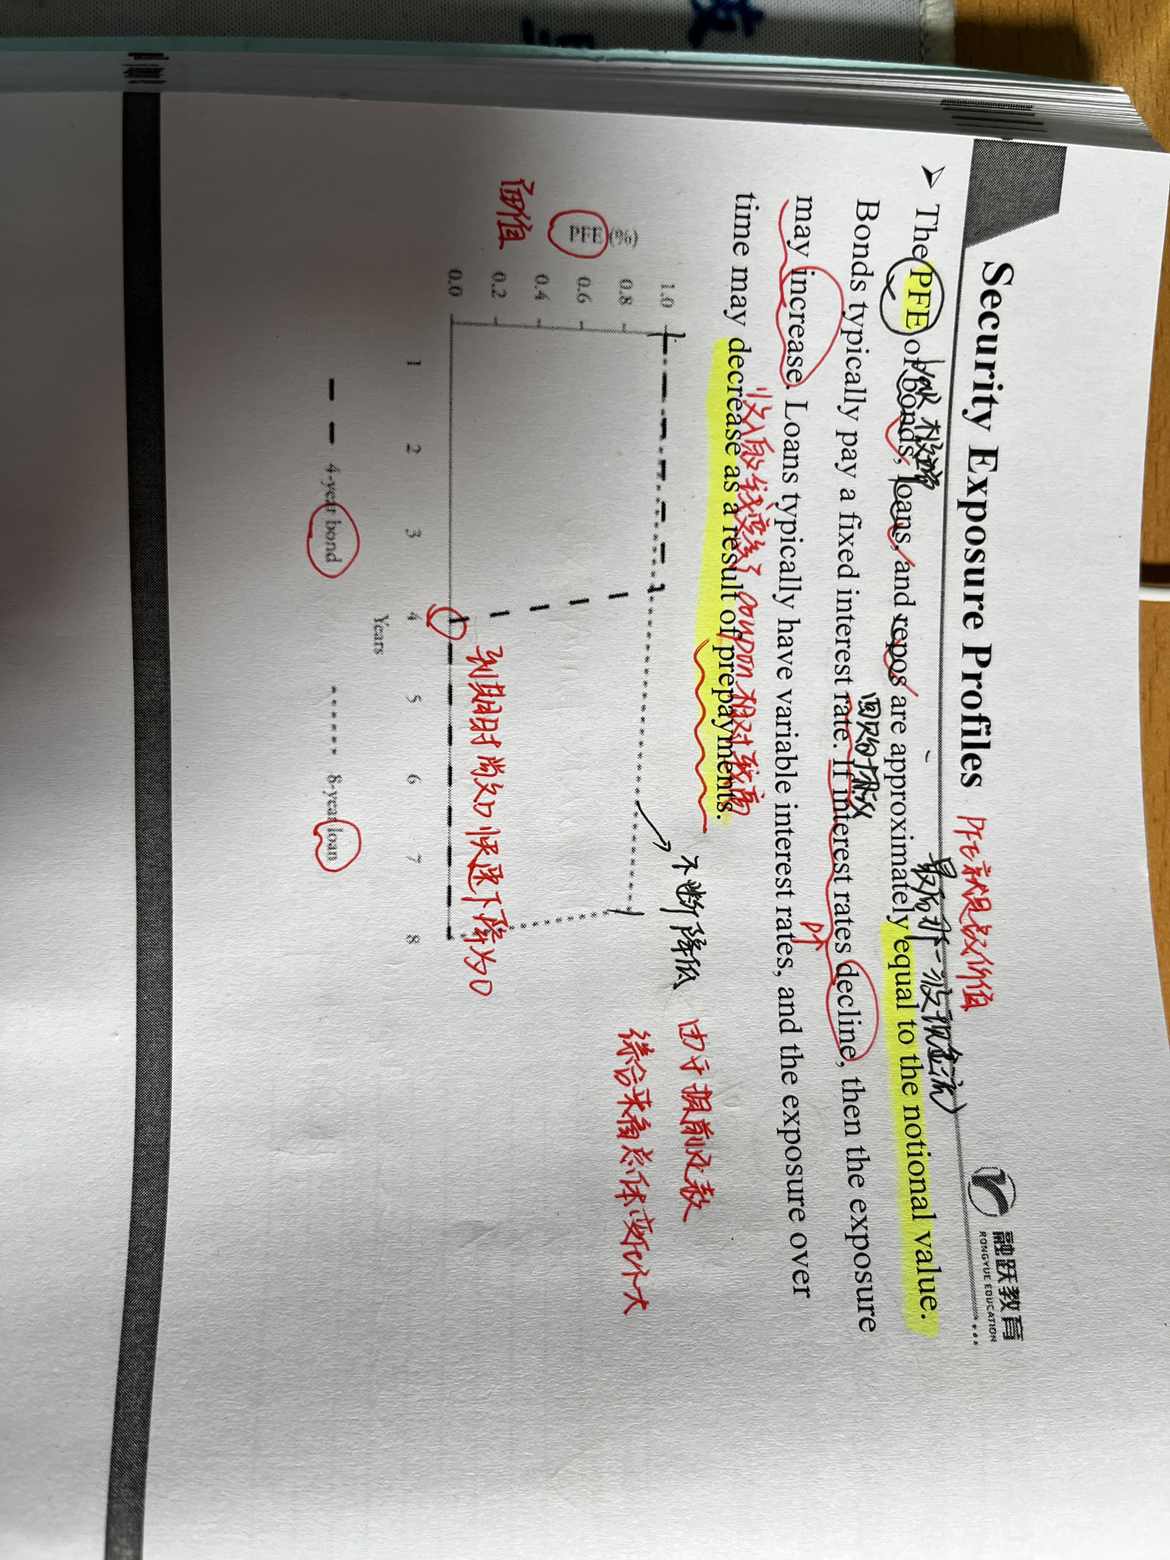 Security Exposure Profiles
PFE就是敞价值
融跃教育
RONGYUE EDUCATION
最后那一波现金流
➢ The PFE of bonds, loans, and repos are approximately equal to the notional value.
回购协议
Bonds typically pay a fixed interest rate. If interest rates decline, then the exposure
may increase. Loans typically have variable interest rates, and the exposure over
P↑
收入的钱变多了 coupon相对较高
time may decrease as a result of prepayments.
PFE (%)
面值
1.0
0.8
0.6
0.4
0.2
0.0
不断降低
由于提前还款
综合来看总体变化不大
到期时 敞口快速下降为0
1 2 3 4 5 6 7 8
Years
4-year bond 8-year loan